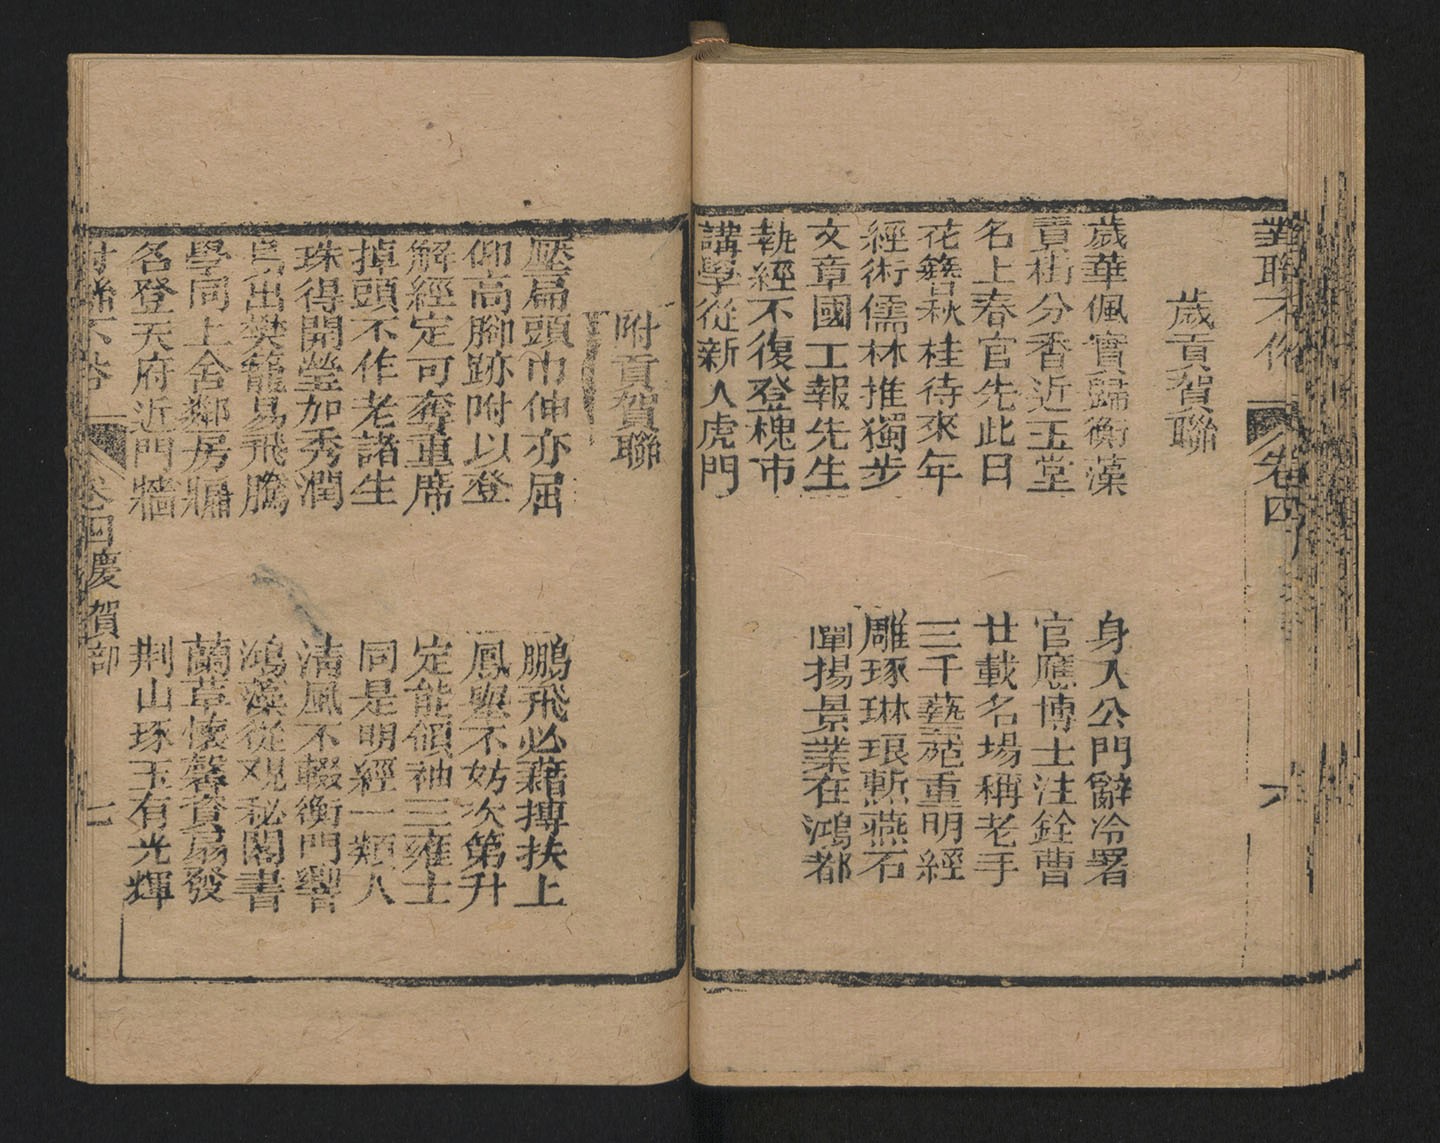 對聯不俗 卷四 六
歲貢賀聯
歲華佩實歸衡藻 身入公門辭冷署
貢樹分香近玉堂 官應博士注銓曹
名上春官先此日 廿載名場稱老手
花簪秋桂待來年 三千藝苑重明經
經術儒林推獨步 雕琢琳琅慙燕石
文章國工報先生 闡揚景業在鴻都
執經不復登槐市
講學從新入虎門
附貢賀聯
壓扁頭巾伸亦屈 鵬飛必藉摶扶上
仰高腳跡附以登 鳳舉不妨次第升
解經定可奪重席 定能領袖三雍士
掉頭不作老諸生 同是明經一類人
珠得開瑩加秀潤 清風不輟衡門響
鳥出樊籠易飛騰 鴻藻從观秘閣書
學同上舍鄰房牖 蘭草懷馨資易發
名登天府近門牆 荆山琢玉有光輝
對聯不俗 卷四慶賀部 七